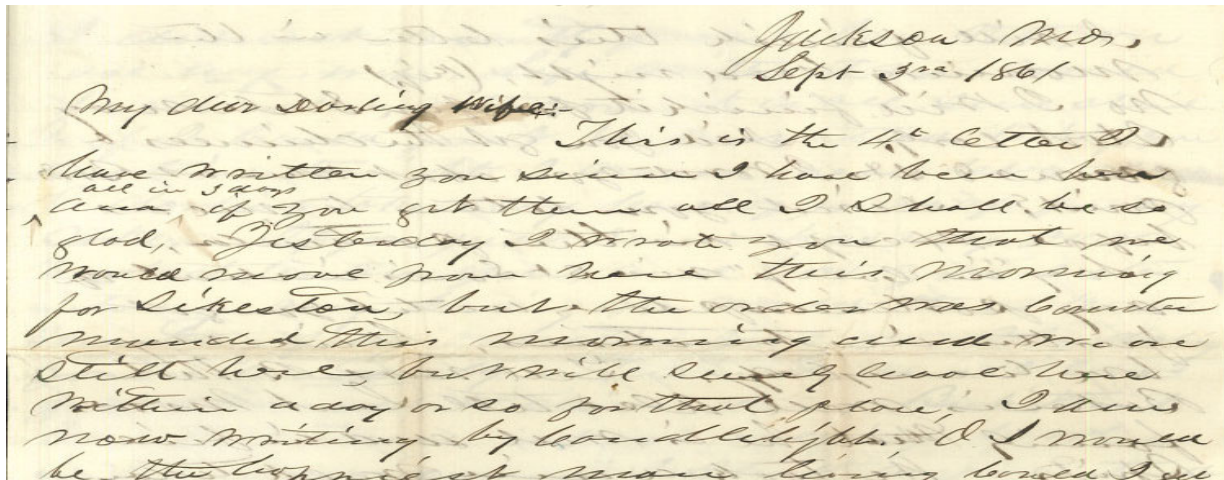 Jackson Mo.,
Sept 3rd 1861
My dear Darling Wife:-
This is the 4th letter I
have written you since I have been here
all in 3 days
and if you get them all I shall be so
glad, Yesterday I wrote you that we
would move from here this morning
for Sikeston, but the order was Counter
manded this morning and we are
still here, but will surely leave here
within a day or so for that place, I am
now writing by Candlelight. O I would
be the happiest man living Could I